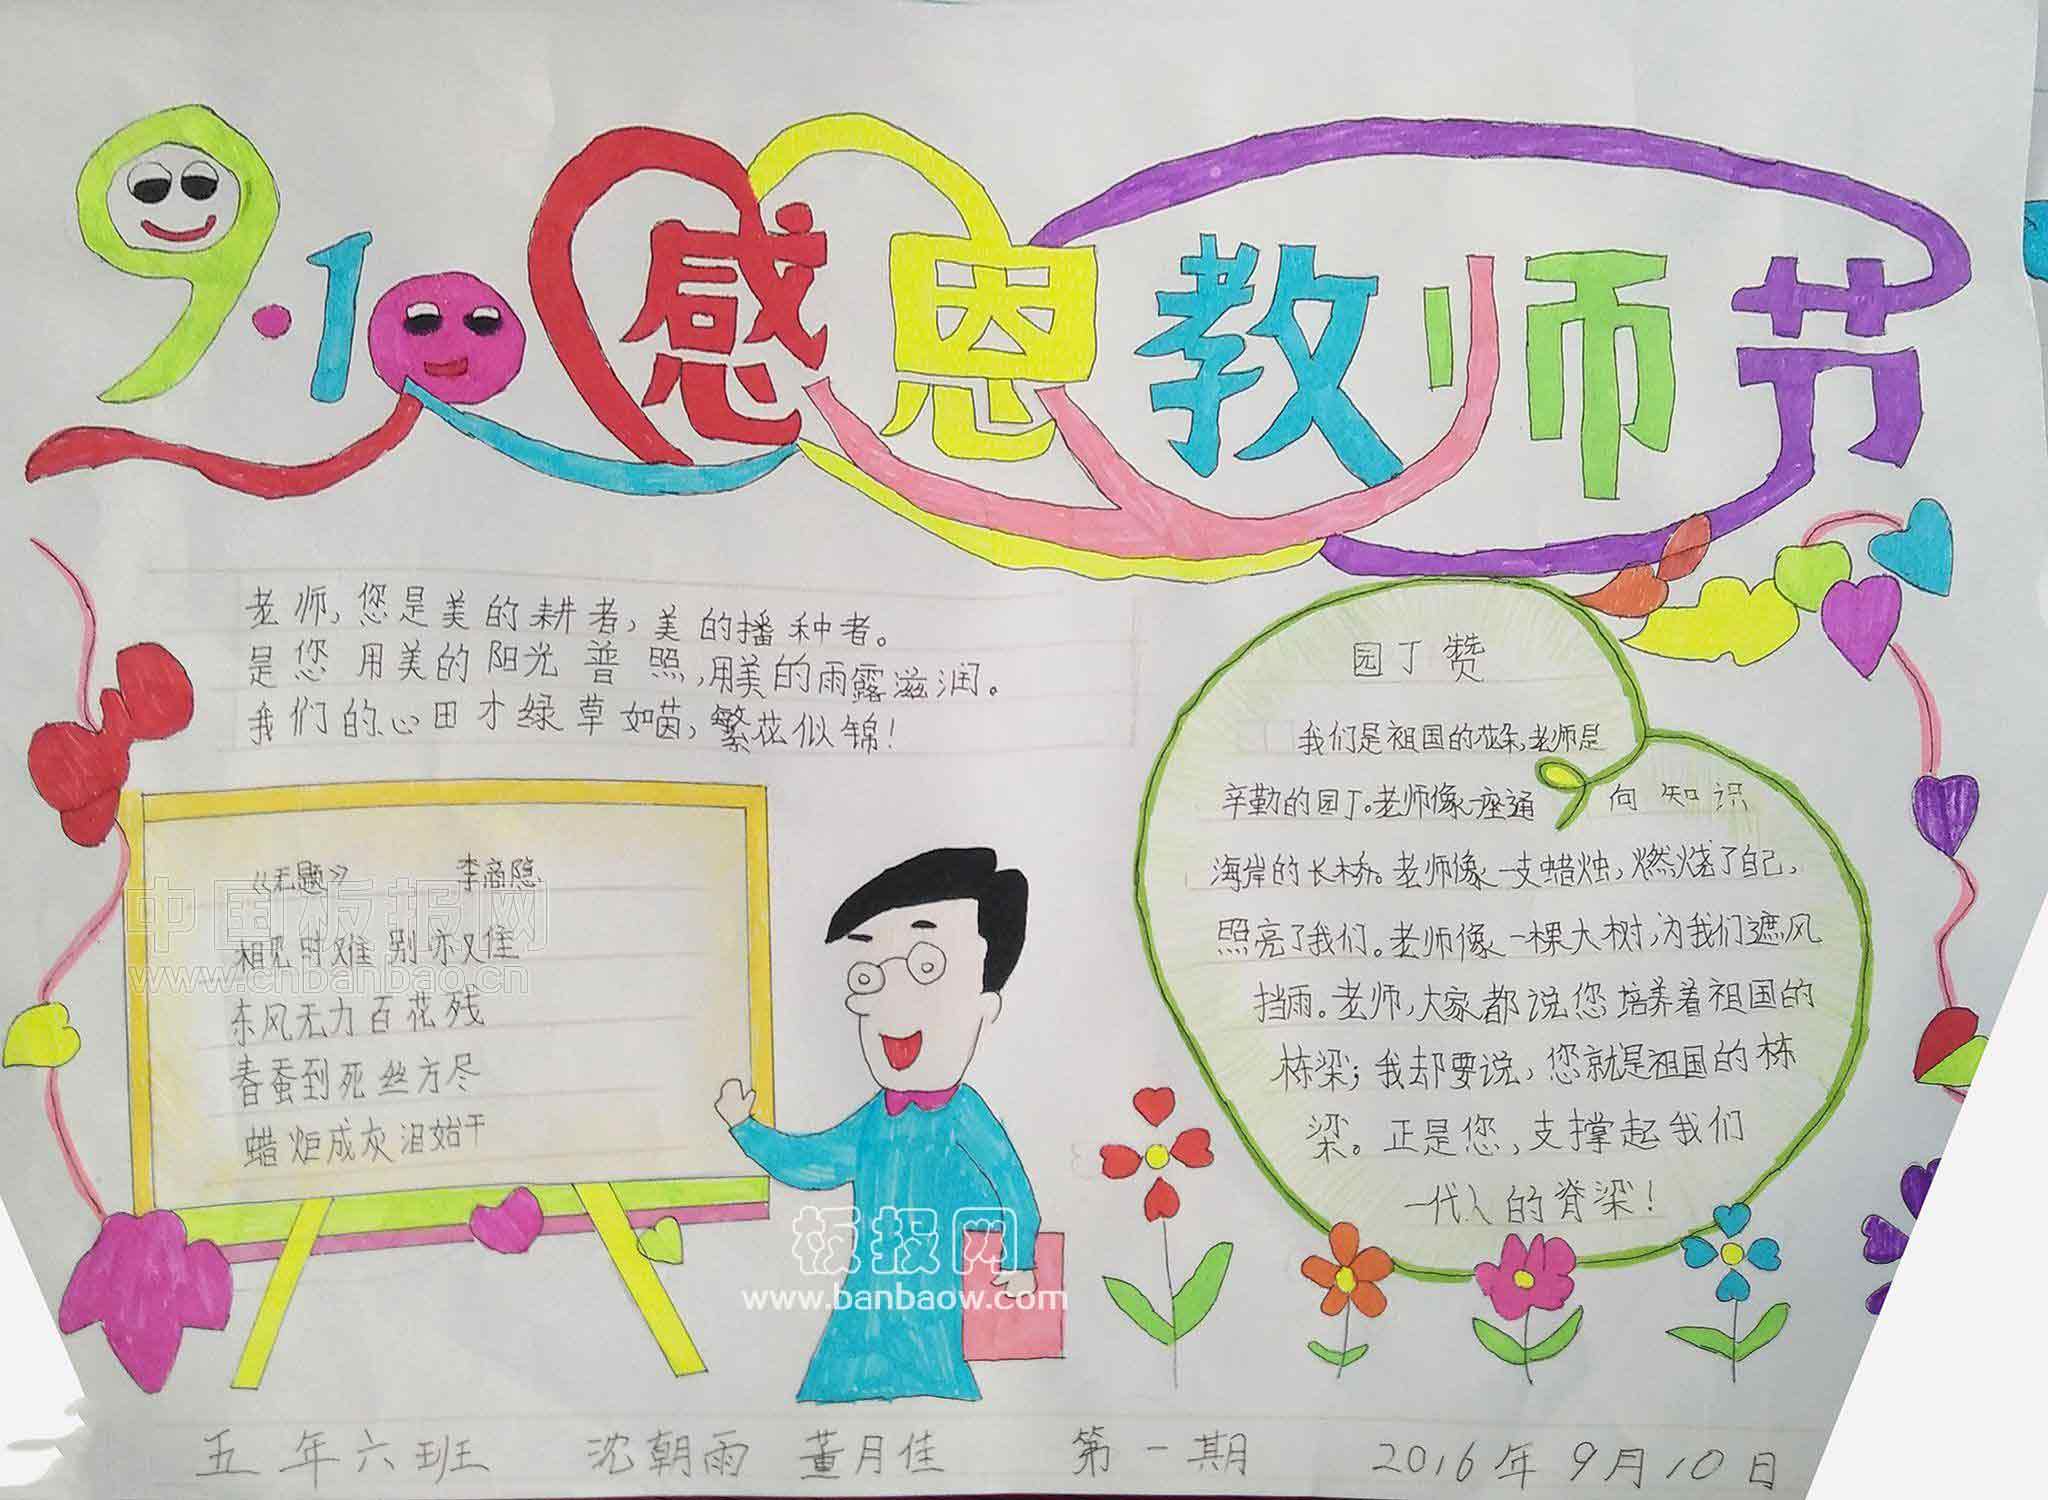 9·10感恩教师节
老师,您是美的耕者,美的播种者。
是您用美的阳光普照,用美的雨露滋润。
我们的心田才绿草如茵,繁花似锦!
《无题》 李商隐
相见时难别亦难
东风无力百花残
春蚕到死丝方尽
蜡炬成灰泪始干
园丁赞
我们是祖国的花朵,老师是
辛勤的园丁。老师像一座通向知识
海岸的长桥。老师像一支蜡烛,燃烧了自己,
照亮了我们。老师像一棵大树,为我们遮风
挡雨。老师,大家都说您培养着祖国的
栋梁;我却要说,您就是祖国的栋
梁。正是您,支撑起我们
一代人的脊梁!
中国板报网
www.cnbanbao.cn
板报网
www.banbaow.com
五年六班 沈朝雨 董月佳 第一期 2016年9月10日